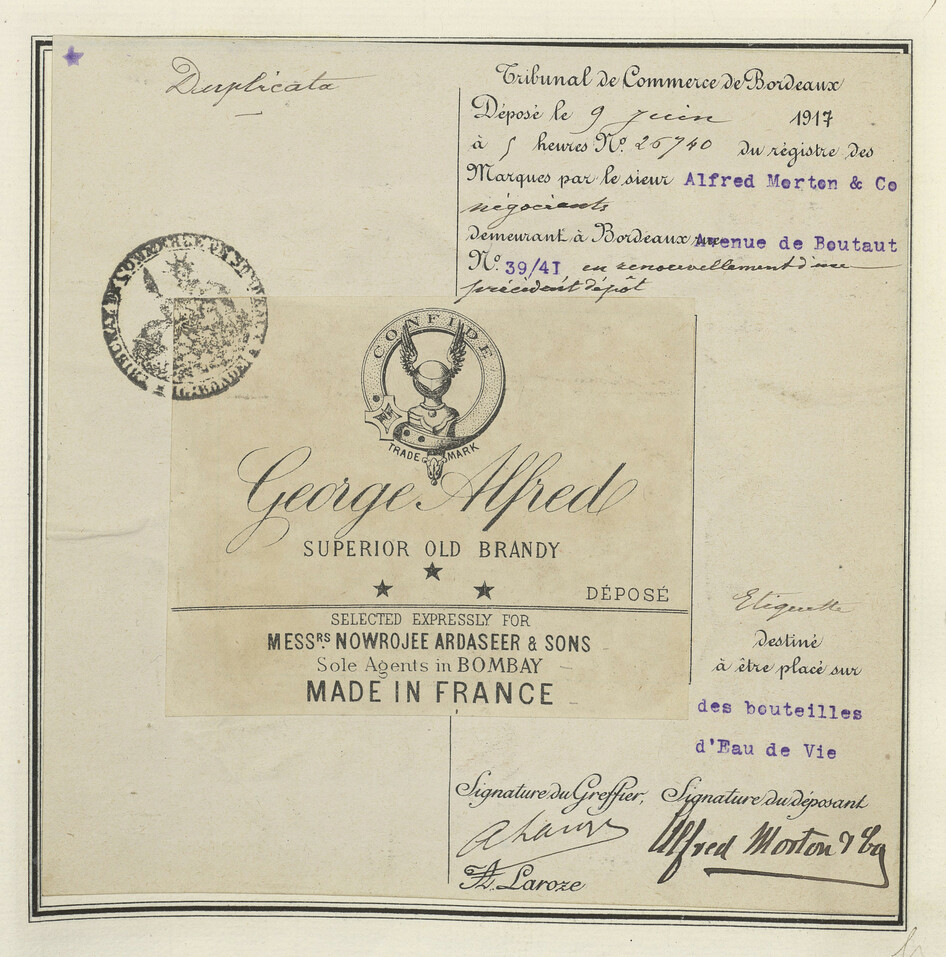 Duplicata
Tribunal de Commerce de Bordeaux
Déposé le 9 juin 1917
à 5 heures Nº. 26740 du régistre des
Marques par le sieur Alfred Morton & Co
négociants
demeurant à Bordeaux Avenue de Boutaut
Nº. 39/41, en renouvellement d'un
précédent dépôt
CONFIDE
TRADE MARK
George Alfred
SUPERIOR OLD BRANDY
DÉPOSÉ
SELECTED EXPRESSLY FOR
MESSRS. NOWROJEE ARDASEER & SONS
Sole Agents in BOMBAY
MADE IN FRANCE
Etiquette
destiné
à être placé sur
des bouteilles
d'Eau de Vie
Signature du Greffier, Signature du déposant
Alfred Morton & Co
A. Laroze